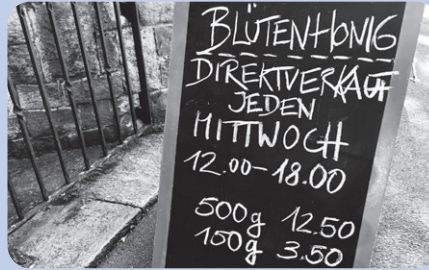 BLÜTENHONIG
DIREKTVERKAUF
JEDEN
MITTWOCH
12.00-18.00
500g 12.50
150g 3.50